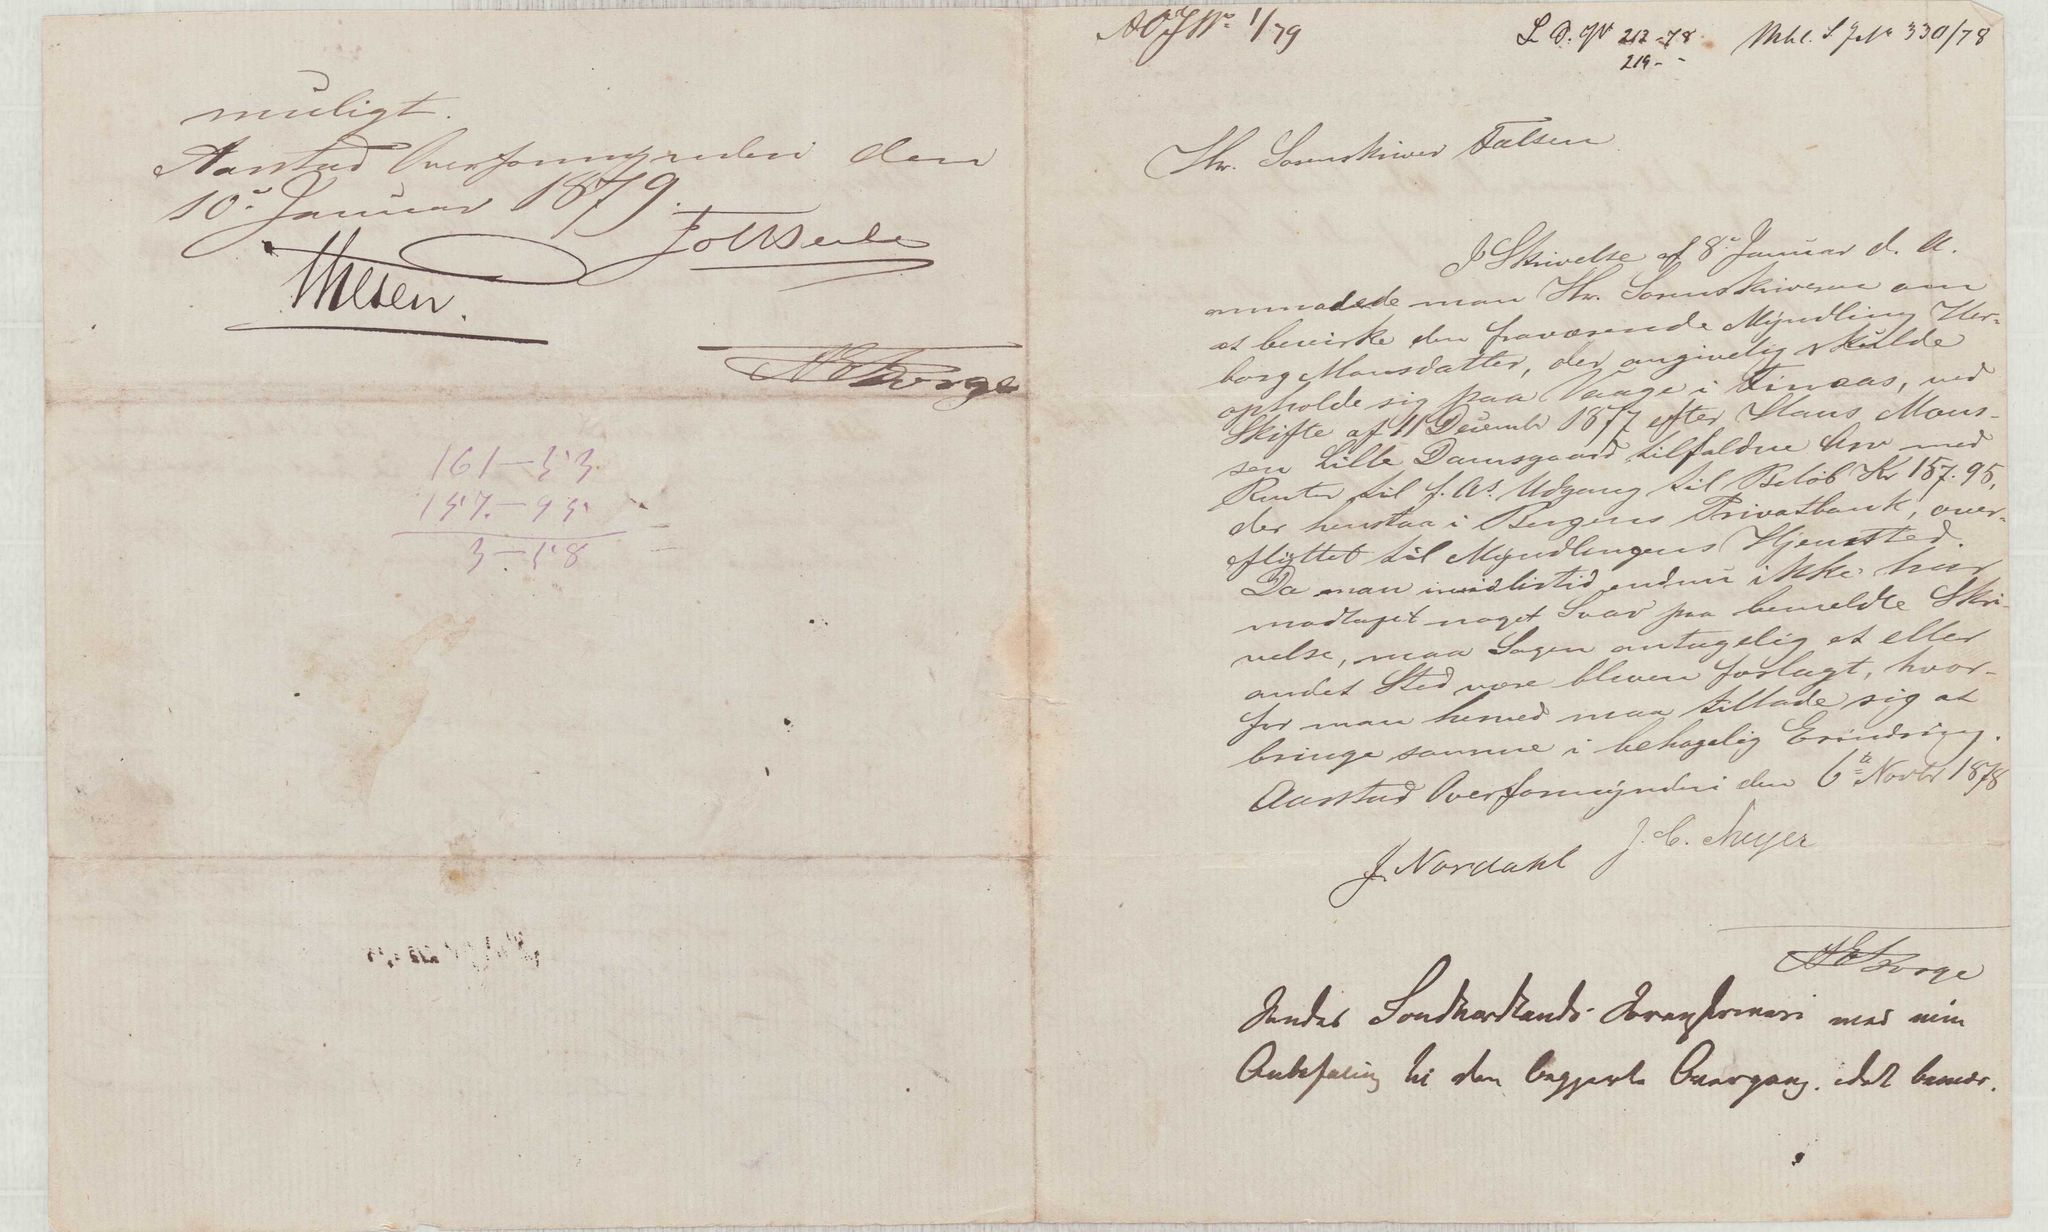 muligt.
Aarstad Overformynderi den
10de Januar 1879.
Thesen.
161-53
157.-95
3-58
1/79
L. D. No 212-78
219- -
No 330/78
Hr. Sorenskriver Falsen
I Skrivelse af 8de Januar d. A.
anmodede man Hr. Sorenskriveren om
at bevirke den fraværende Myndling Her-
borg Monsdatter, der angivelig skulde
opholde sig paa Vaage i Finaas, ved
Skifte af 11 Decembr 1877 efter Hans Mons-
sen Lille Damsgaard tilfaldne Arv med
Renter til f. As. Udgang til Beløb Kr 157.95,
der henstaa i Bergens Privatbank, over-
flyttet til Myndlingens Hjemsted.
Da man imidlertid endnu ikke har
modtaget noget Svar paa bemeldte Skri-
velse, maa Sagen antagelig et eller
andet Sted være bleven forlagt, hvor-
for man herved maa tillade sig at
bringe samme i behagelig Erindring.
Aarstad Overformynderi den 6te Novbr 1878
J. C. Meyer
J. Nordahl
Borge
Sendes Søndhordlands Sorenskriveri med min
Anbefaling til den begjærte Overgang, idet bemær-